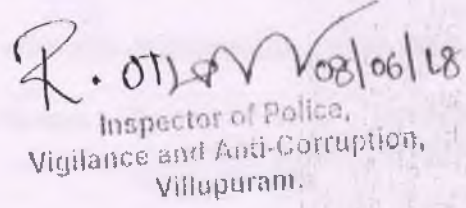 R. 08/06/18
Inspector of Police,
Vigilance and Anti-Corruption,
Villupuram.